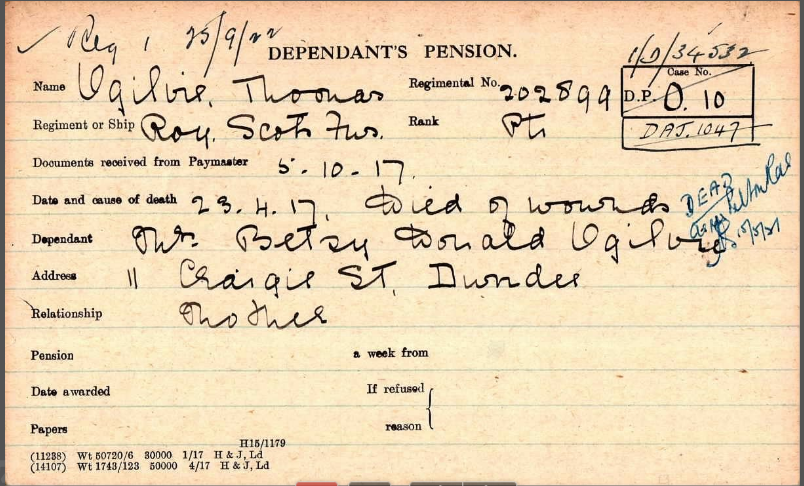 ✓ Reg 1 25/9/22
DEPENDANT'S PENSION.
1/D/34532
Name Ogilvie, Thomas Regimental No. 202899
Case No.
D.P. O. 10
DAJ. 1047
Regiment or Ship Roy. Scots Fus. Rank Pte
Documents received from Paymaster 5.10.17.
Date and cause of death 23.4.17. Died of wounds
DEAD
Dependant Mrs. Betsy Donald Ogilvie
Address 11 Craigie St, Dundee
Relationship Mother
Pension a week from
Date awarded If refused
Papers reason
H15/1179
(11238) Wt 50720/6 30000 1/17 H & J, Ld
(14107) Wt 1743/123 50000 4/17 H & J, Ld